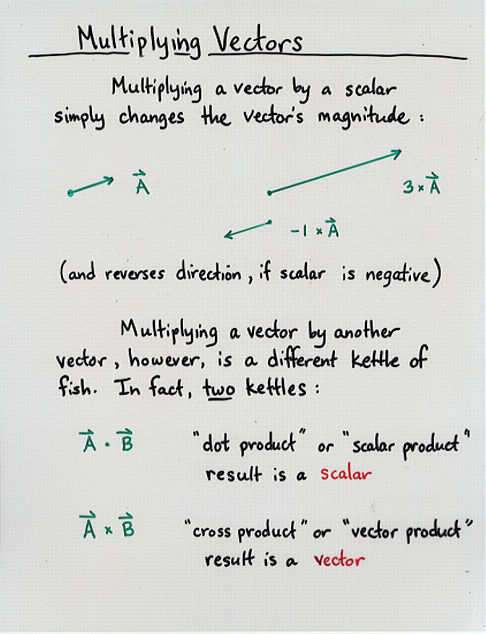 Multiplying Vectors
Multiplying a vector by a scalar
simply changes the vector's magnitude :
A⃗
3 × A⃗
-1 × A⃗
(and reverses direction, if scalar is negative)
Multiplying a vector by another
vector, however, is a different kettle of
fish. In fact, two kettles :
A⃗ · B⃗ "dot product" or "scalar product"
result is a scalar
A⃗ × B⃗ "cross product" or "vector product"
result is a vector